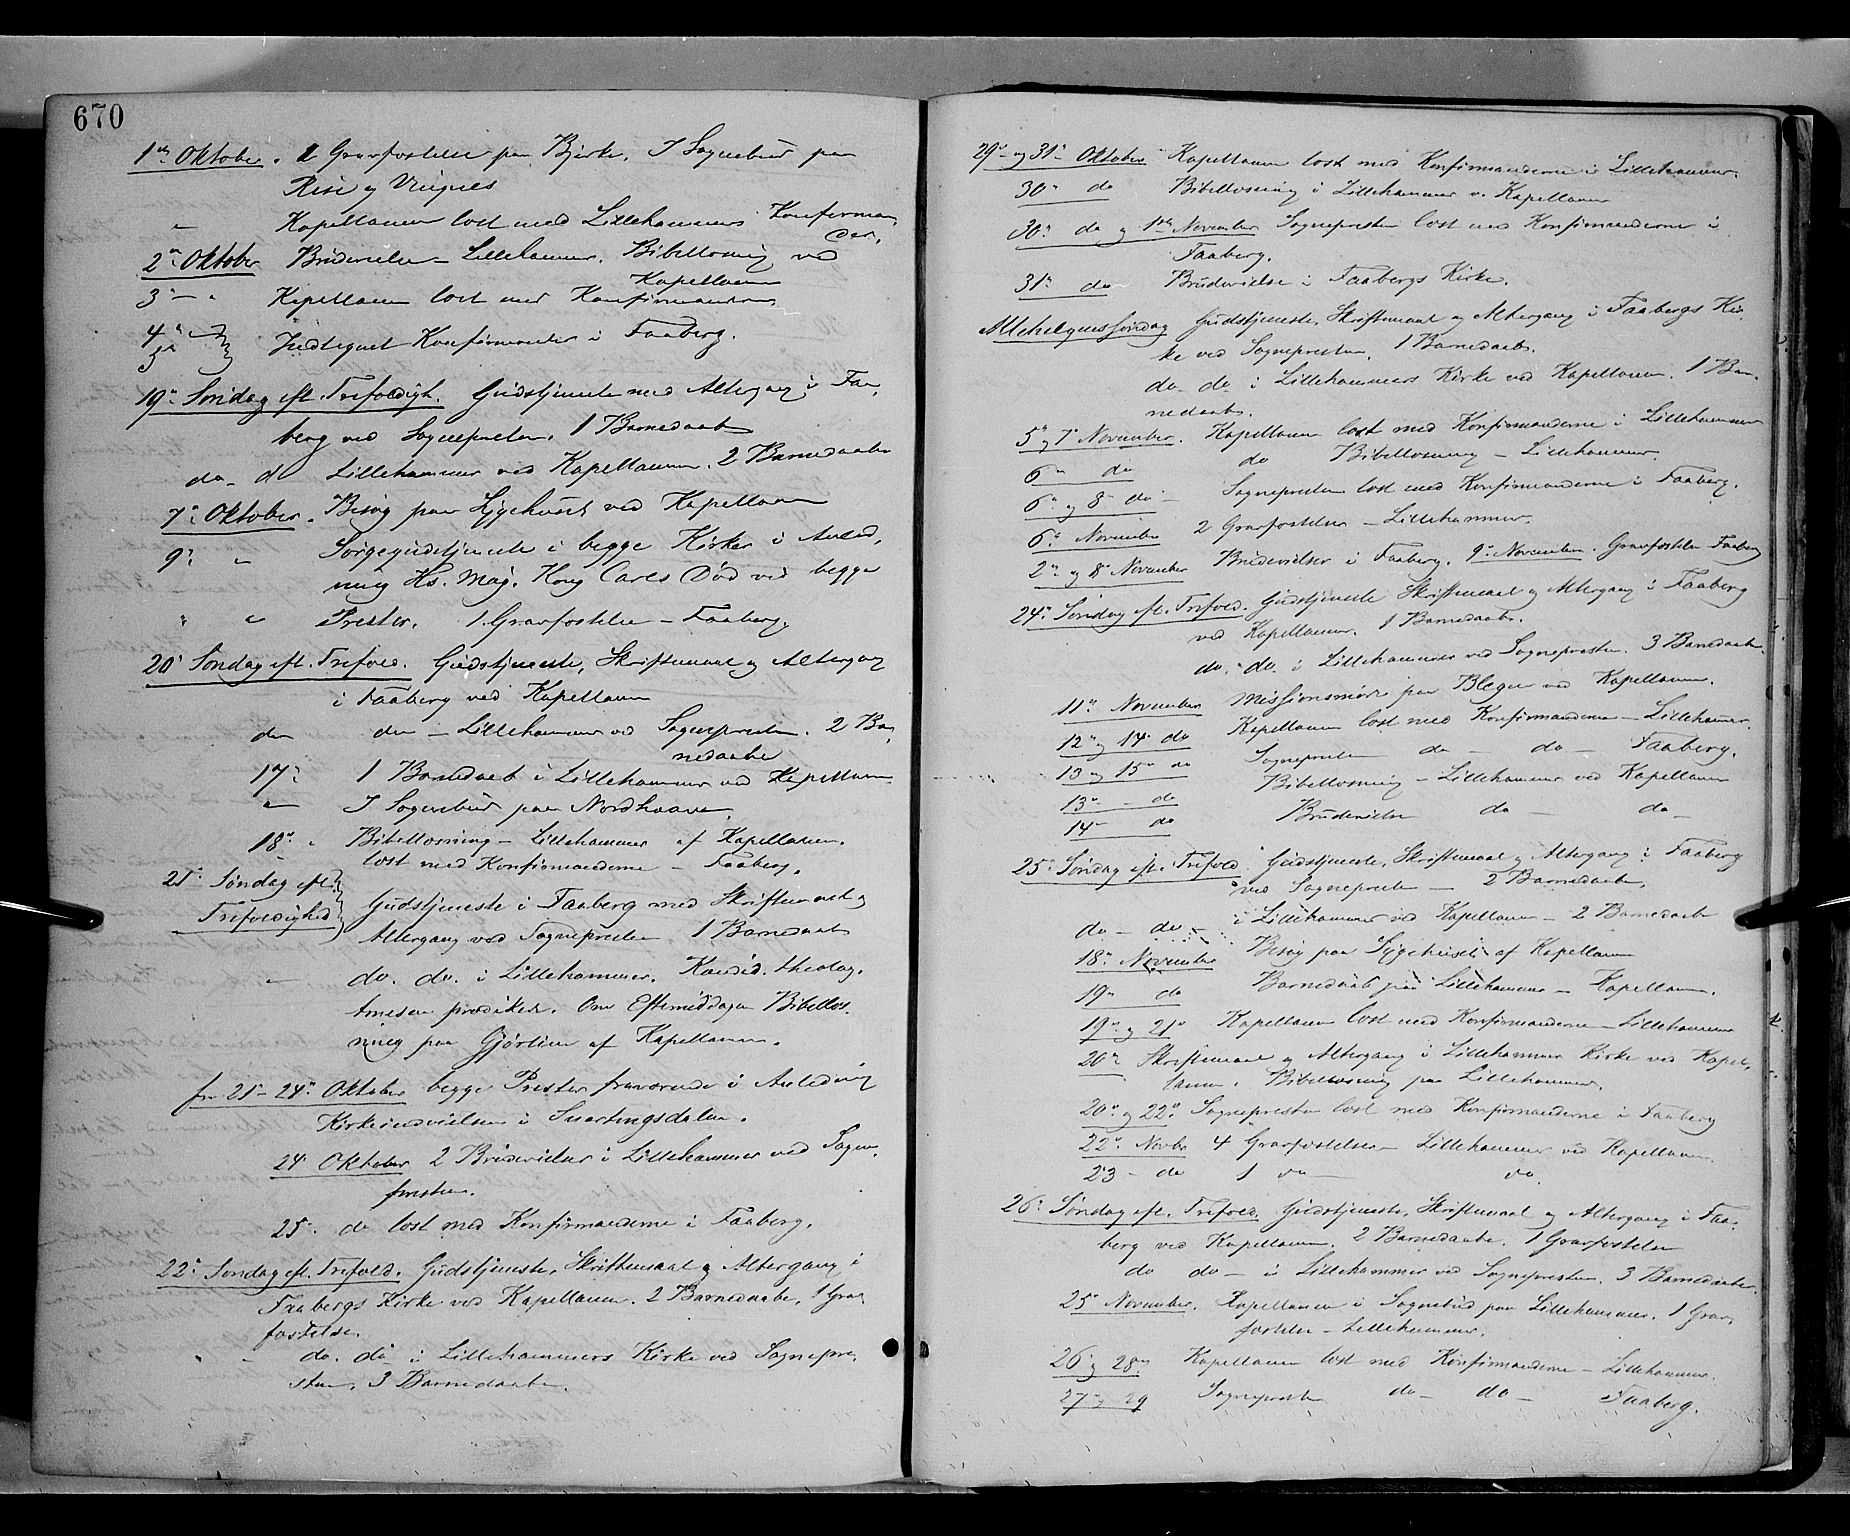 670
1ste Oktober. 2 Gravfæstelse paa Bjerke. I Sognebud paa
Rise og Vingnes
" Kapellanen læst med Lillehammers Konfirman
der.
2den Oktober Brudevielse – Lillehammer. Bibellæsning ved
Kapellanen
3 – " Kapellanen læst med Konfirmanderne
4
5 Indtegnet Konfirmanter i Faaberg.
19. Søndag eft. Trefoldigh. Gudstjeneste med Altergang i Faa
berg ved Sognepresten. 1 Barnedaab
do – do Lillehammer ved Kapellanen. 2 Barnedaabe
7. Oktober. Besøg paa Sygehuset ved Kapellanen
9. " Sørgegudstjeneste i begge Kirker i Anled
ning Hs. Maj. Kong Carls Død ved begge
" " Prester. 1 Gravfæstelse – Faaberg.
20. Søndag eft. Trefold. Gudstjeneste, Skriftemaal og Altergang
i Faaberg ved Kapellanen
do do – Lillehammer ved Sognepresten. 2 Bar
nedaabe
17. 1 Barnedaab i Lillehammer ved Kapellanen
" I Sognebud paa Nordhove.
18. " Bibellæsning – Lillehammer af Kapellanen.
læst med Konfirmanderne – Faaberg.
21. Søndag eft.
Trefoldighed Gudstjeneste i Faaberg med Skriftemaal og
Altergang ved Sognepresten 1 Barnedaab
" do. do. i Lillehammer. Kandid. theolog.
Arnesen prædiket. Om Eftermiddagen Bibellæs
ning paa Gjørlien af Kapellanen.
fra 21 – 24 Oktober begge Prester fraværende i Anledning
Kirkeindvielsen i Snertingsdalen.
24. Oktober 2 Brudevielser i Lillehammer ved Sogne
presten.
25. do læst med Konfirmanderne i Faaberg.
22. Søndag eft. Trefold. Gudstjeneste, Skriftemaal og Altergang i
Faabergs Kirke ved Kapellanen. 2 Barnedaabe, 1 Grav
fæstelse.
do. do – i Lillehammers Kirke ved Sognepre
sten. 3 Barnedaabe.
29 og 31 Oktober Kapellanen læst med Konfirmanderne i Lillehammer.
30 do Bibellæsning i Lillehammer v. Kapellanen
30 do og 1ste November Sognepresten læst med Konfirmanderne i
Faaberg.
31 do Brudevielse i Faabergs Kirke.
Allehelgenssøndag Gudstjeneste, Skriftemaal og Altergang i Faabergs Kir
ke ved Sognepresten. 1 Barnedaab.
do – do i Lillehammers Kirke ved Kapellanen. 1 Bar
nedaab.
5 og 7 November. Kapellanen læst med Konfirmanderne i Lillehammer
6 do do Bibellæsning – Lillehammer.
6 og 8 do – Sognepresten læst med Konfirmanderne i Faaberg.
6. November 2 Gravfæstelser – Lillehammer.
2 og 8 November Brudevielser i Faaberg. 9 November. Gravfæstelse Faaberg
24. Søndag eft. Trefold. Gudstjeneste Skriftemaal og Altergang i Faaberg
ved Kapellanen. 1 Barnedaab.
do. do. i Lillehammer ved Sognepresten. 3 Barnedaabe.
11 November Missionsmøde paa Bleger ved Kapellanen.
12 og 14 do Kapellanen læst med Konfirmanderne – Lillehammer.
13 og 15 do Sognepresten do – do – Faaberg.
13 – do Bibellæsning – Lillehammer ved Kapellanen
14 – do Brudevielse do – do –
25. Søndag eft. Trefold. Gudstjeneste, Skriftemaal og Altergang i Faaberg
ved Sognepresten – 2 Barnedaabe.
do – do – i Lillehammer ved Kapellanen – 2 Barnedaabe
18. November Besøg paa Sygehuset af Kapellanen
19 do Barnedaab paa Lillehammer – Kapellanen.
19 og 21 Kapellanen læst med Konfirmanderne – Lillehammer
20 Skriftemaal og Altergang i Lillehammer Kirke ved Kapel
lanen. Bibellæsning paa Lillehammer.
20 og 22. Sognepresten læst med Konfirmanderne i Faaberg
22. Novbr 4 Gravfæstelser – Lillehammer ved Kapellanen.
23 – do 1 do – do
26. Søndag eft. Trefold. Gudstjeneste, Skriftemaal og Altergang i Faa
berg ved Kapellanen. 2 Barnedaabe. 1 Gravfæstelse
do do – i Lillehammer ved Sognepresten. 3 Barnedaabe.
25 November. Kapellanen i Sognebud paa Lillehammer. 1 Grav
fæstelse – Lillehammer.
26 og 28 Kapellanen læst med Konfirmanderne – Lillehammer.
27 og 29 Sognepresten do – do – Faaberg.